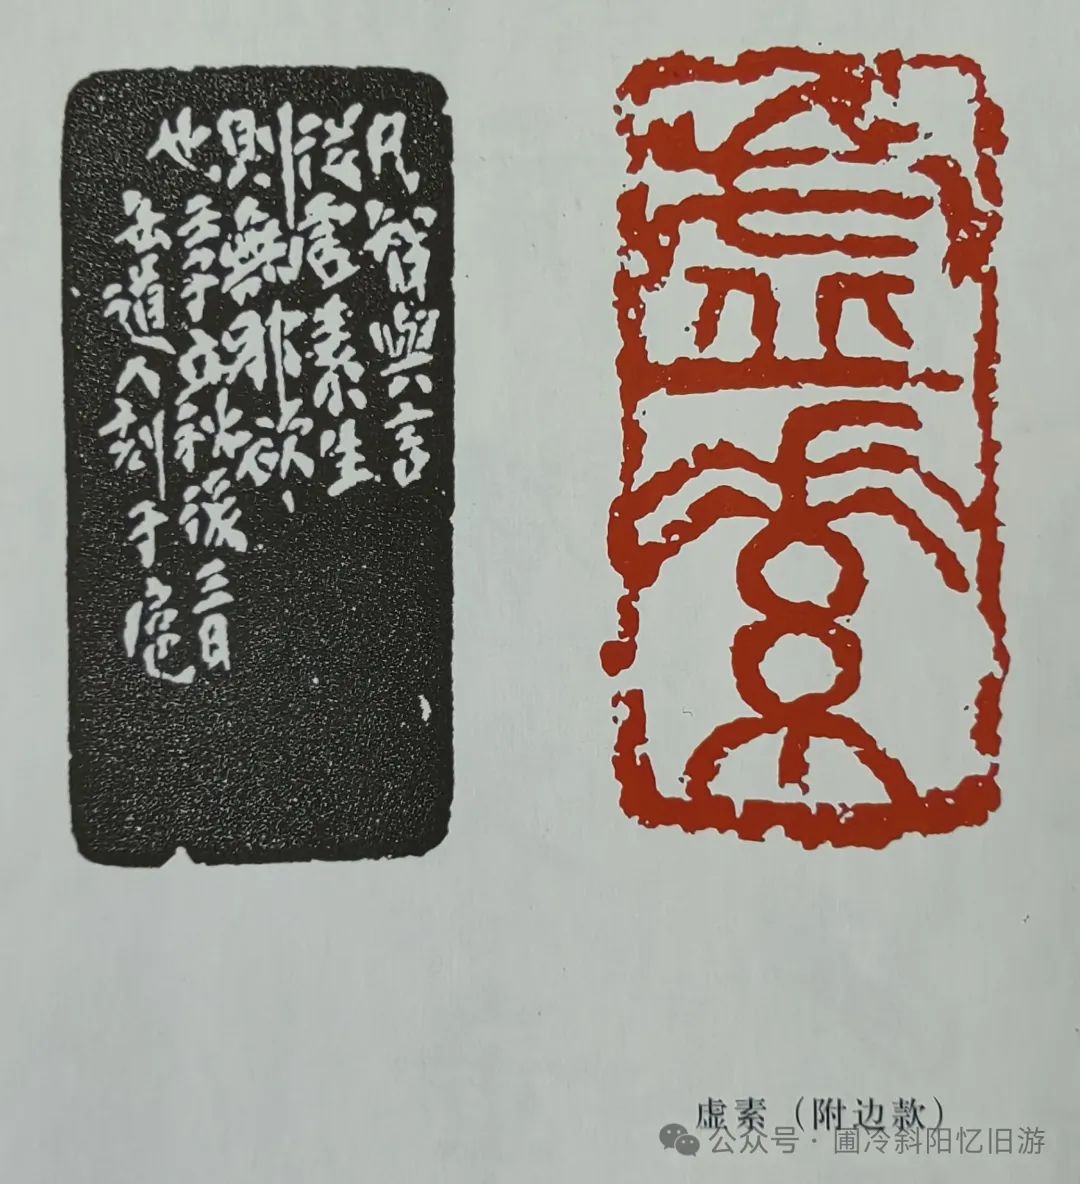 凡智與言
從虛素生
則無邪欲、
也、壬子立秋後三日
缶道人刻于滬
虛素
虚素（附边款）
公众号 · 圃冷斜阳忆旧游